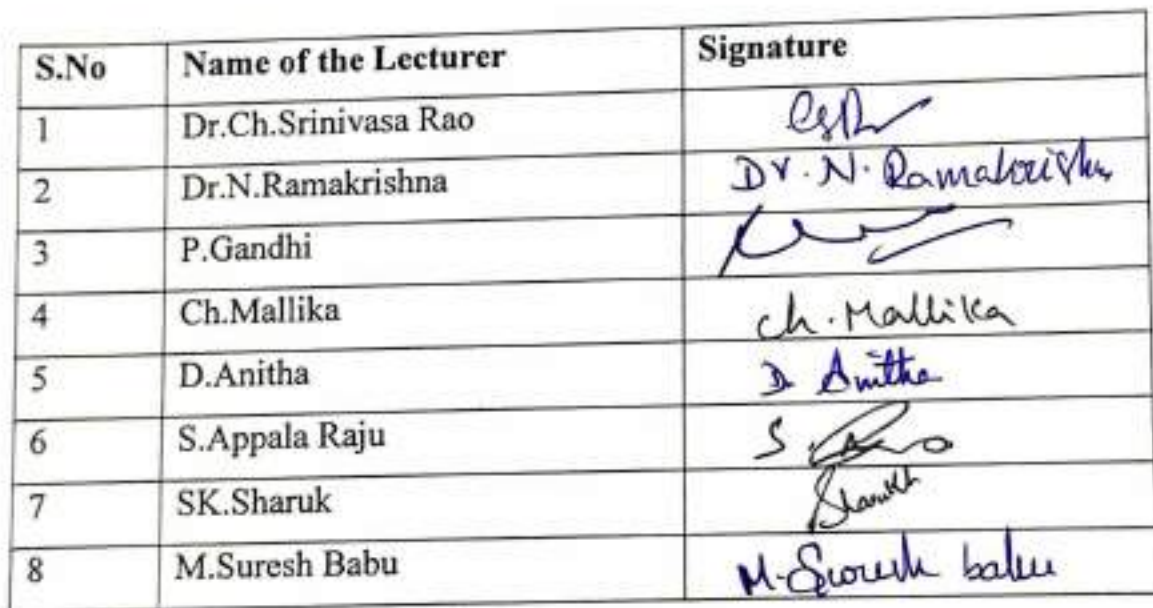 S.No Name of the Lecturer Signature
1 Dr.Ch.Srinivasa Rao
2 Dr.N.Ramakrishna Dr. N. Ramakrishna
3 P.Gandhi
4 Ch.Mallika ch. Mallika
5 D.Anitha D Anitha
6 S.Appala Raju S.
7 SK.Sharuk Sharukh
8 M.Suresh Babu M. Suresh babu